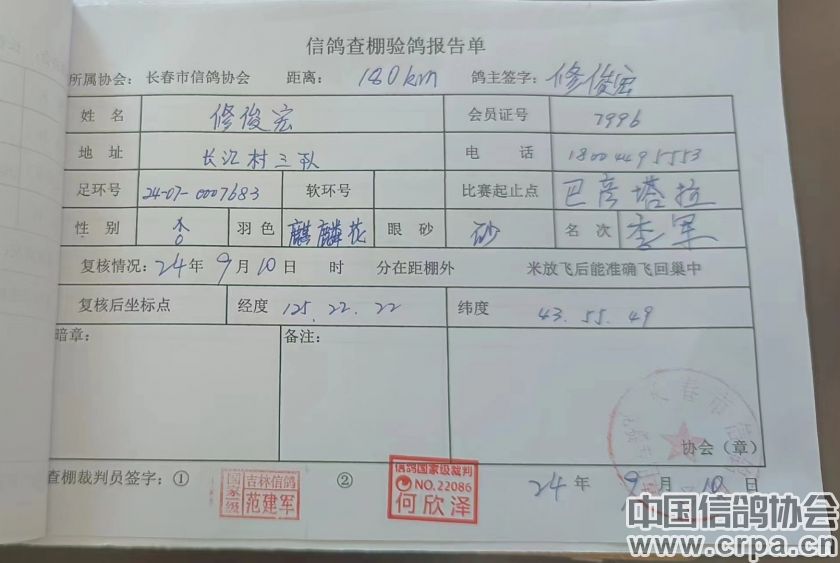 信鸽查棚验鸽报告单
所属协会: 长春市信鸽协会 距离: 180km 鸽主签字: 修俊宏
姓名 修俊宏 会员证号 7996
地址 长江村三队 电话 18004495553
足环号 24-07-0007683 软环号 比赛起止点 巴彦塔拉
性别 羽色 麒麟花 眼砂 砂 名次 季军
复核情况: 24年9月10日 时 分在距棚外 米放飞后能准确飞回巢中
复核后坐标点 经度 125.22.22 纬度 43.55.49
暗章: 备注:
长春市信鸽
协会（章）
查棚裁判员签字: ① ②
国家级 吉林信鸽 范建军
信鸽国家级裁判 NO.22086 何欣泽
24年9月10日
中国信鸽协会
www.crpa.cn